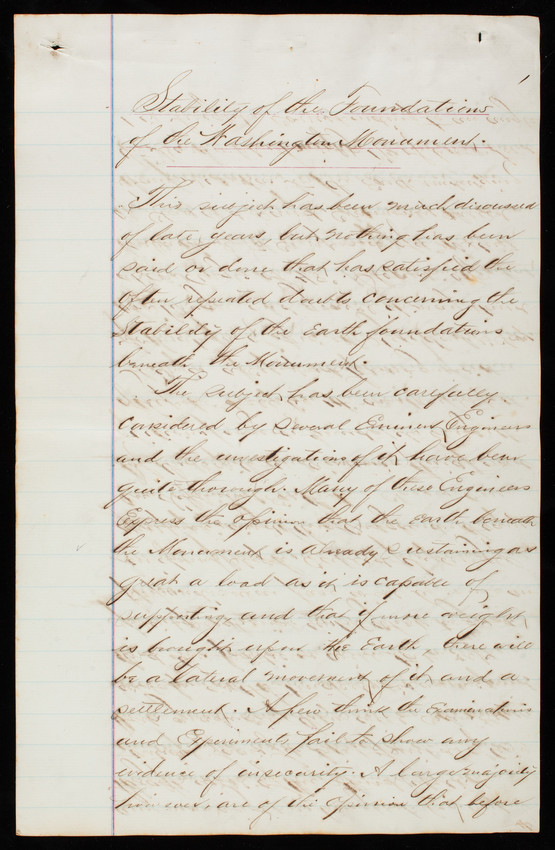 Stability of the Foundations
of the Washington Monument.
This subject has been much discussed
of late years, but nothing has been
said or done that has satisfied the
often repeated doubts concerning the
Stability of the Earth foundations
beneath the Monument.
The subject has been carefully
Considered by several Eminent Engineers
and the investigations of it have been
quite thorough. Many of these Engineers
Express the opinion that the earth beneath
the Monument is already sustaining as
great a load as it is capable of
supporting, and that if more weight
is brought upon the Earth, there will
be a lateral movement of it and a
settlement. A few think the Examinations
and Experiments fail to show any
evidence of insecurity. A large majority
however, are of the opinion that before